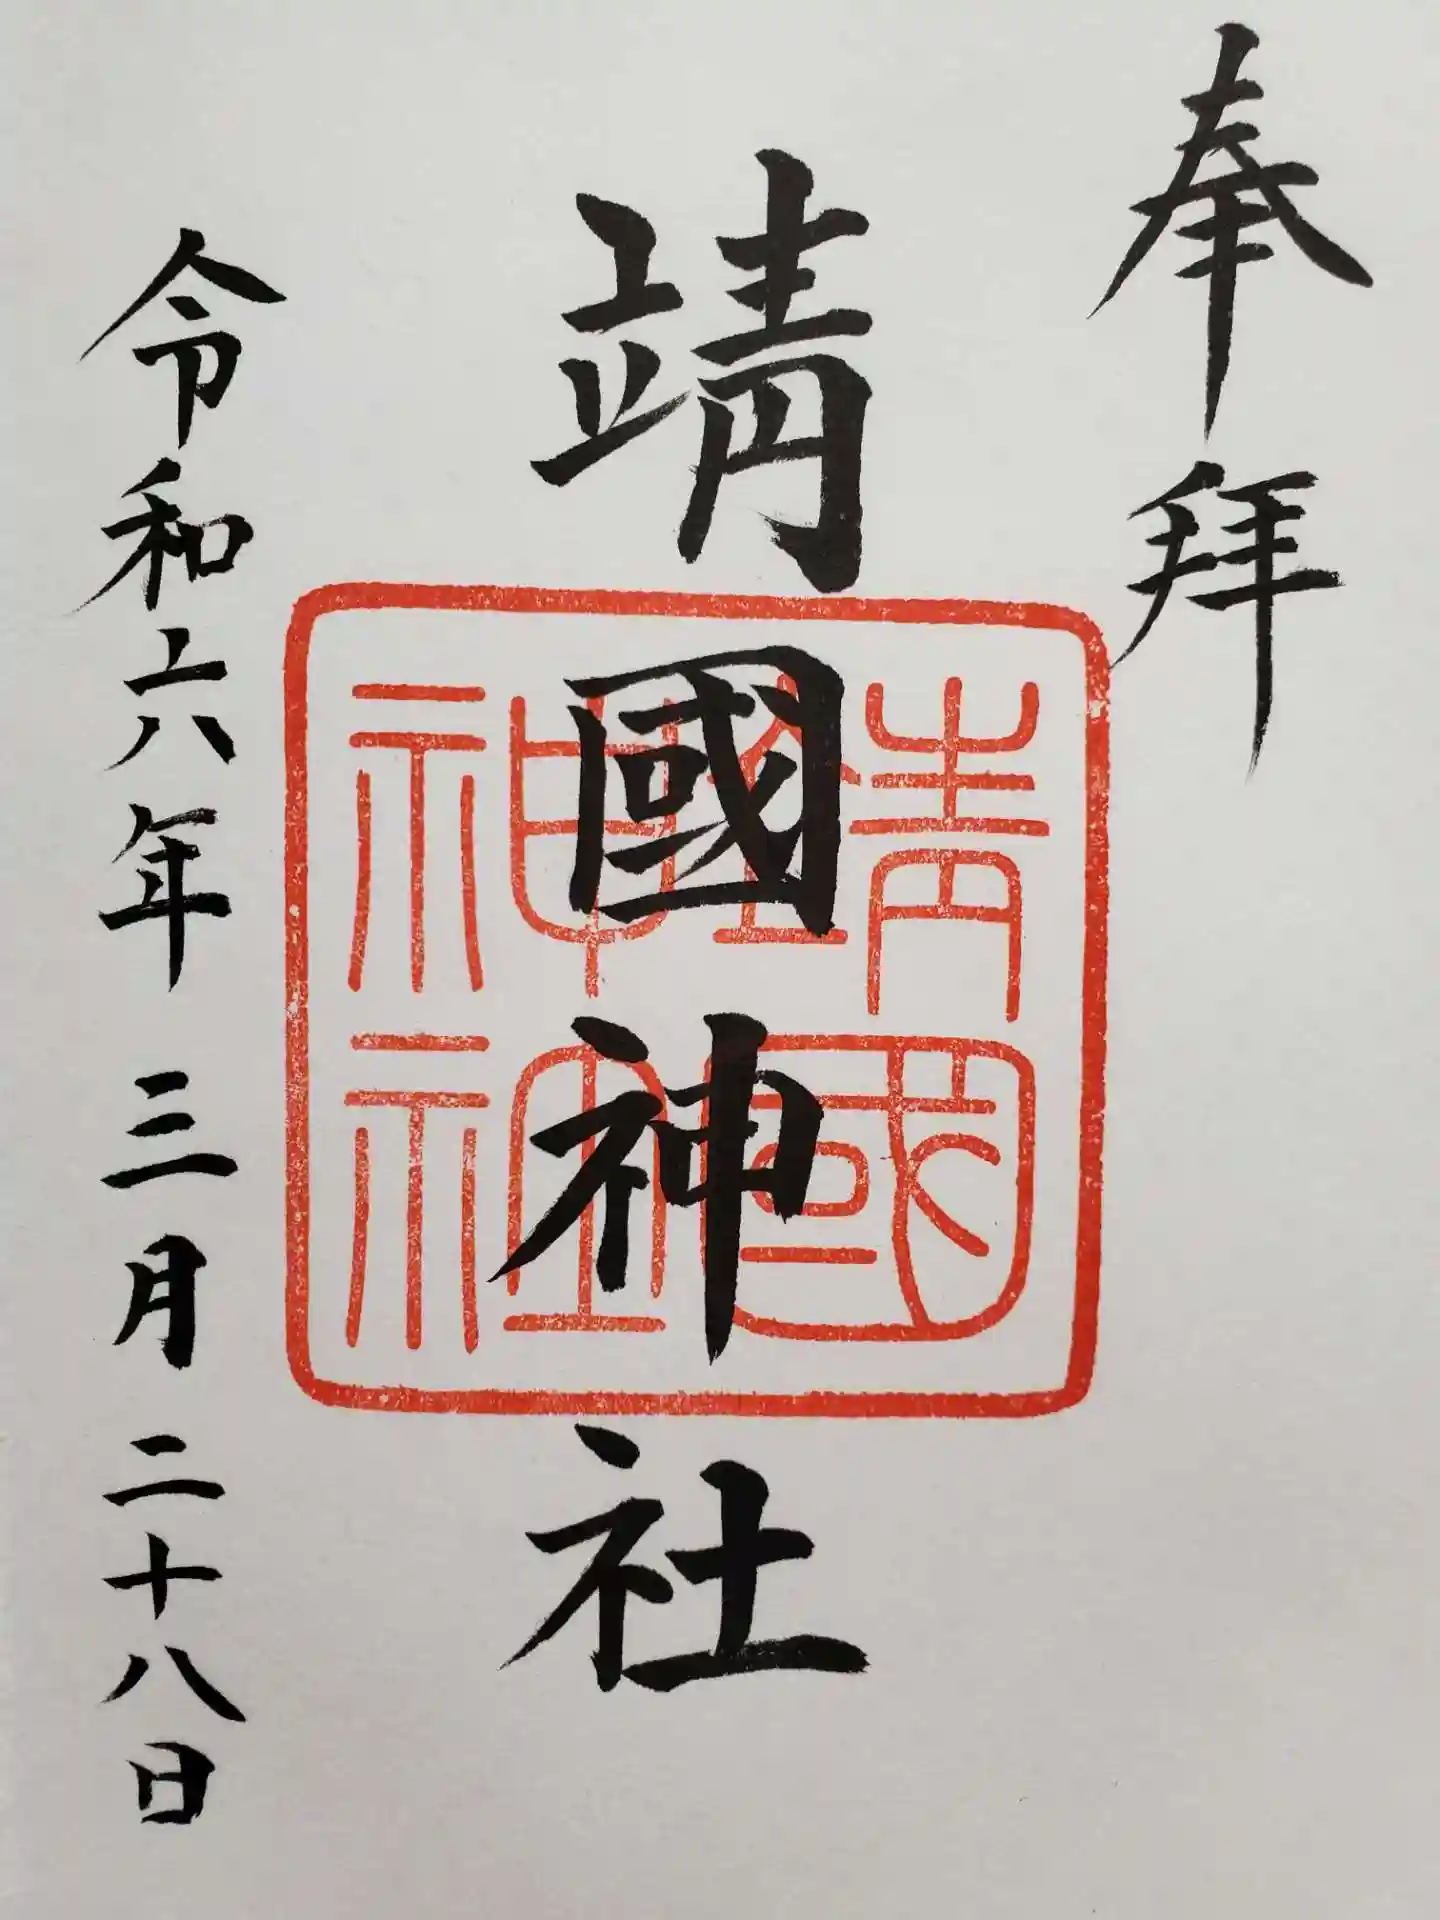 奉拝
靖國神社
靖國神社
令和六年三月二十八日